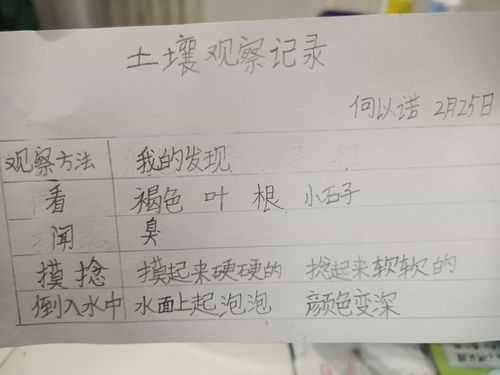 土壤观察记录
何以诺 2月25日
观察方法 我的发现
看 褐色 叶 根 小石子
闻 臭
摸 捻 摸起来硬硬的 捻起来软软的
倒入水中 水面上起泡泡 颜色变深